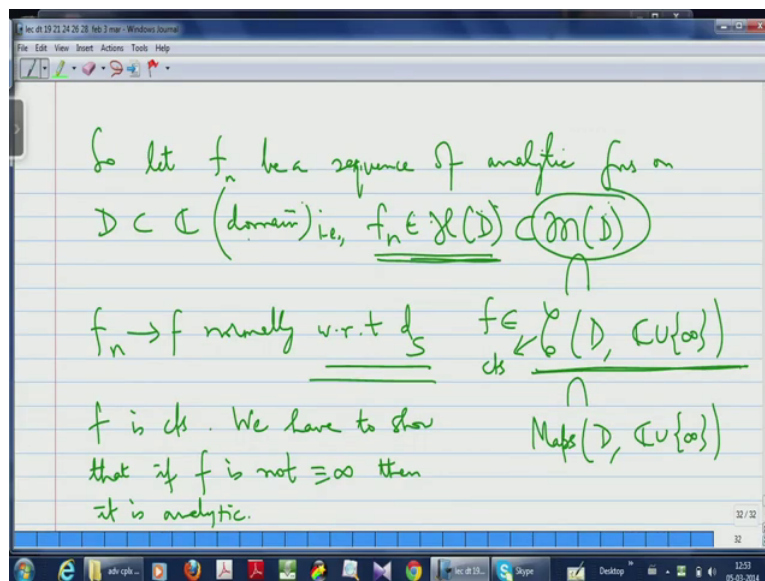 lec dt 19 21 24 26 28 feb 3 mar - Windows Journal
File Edit View Insert Actions Tools Help
So let fₙ be a sequence of analytic fns on
D ⊂ ℂ (domain) i.e., fₙ ∈ ℋ(D) ⊂ 𝔐(D)
∩
fₙ → f normally w.r.t d_S f ∈ 𝒞(D, ℂ∪{∞})
cts
∩
f is cts. We have to show Maps(D, ℂ∪{∞})
that if f is not ≡∞ then
it is analytic.
32/32
32
adv cpls ... lec dt 19... Skype Desktop 12:53
05-03-2014